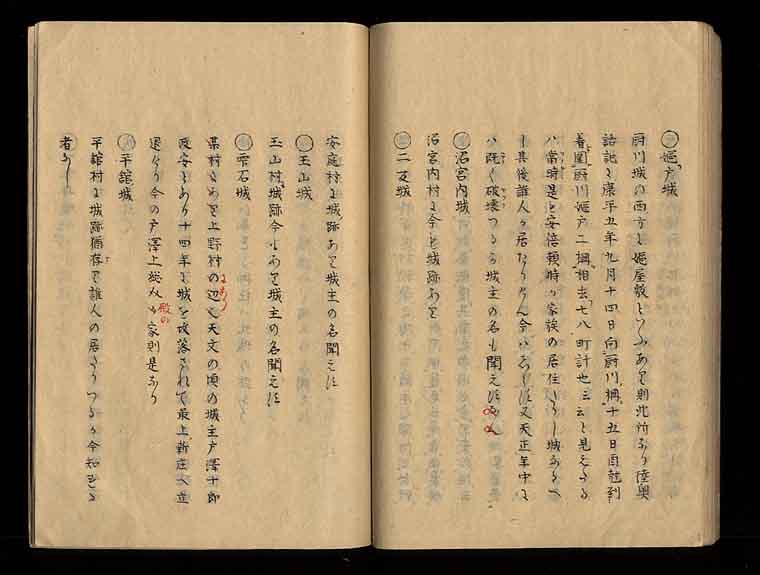 嫗戸城
厨川城の西方に嫗屋敷といふあり則此所なり陸奥
話記に康平五年九月十四日向厨川柵十五日酉尅到
着圍厨川嫗戸二柵相去七八町計也云云と見えたる
ハ當時是を安倍頼時の家族の居住したりし城なるへ
し其後誰人か居たりけん今ハしれす又天正年中に
ハ既く破壊つるか城主の名も聞えす
沼宮内城
沼宮内村に今も城跡あり
二又城
安庭村に城跡あり城主の名聞えす
玉山城
玉山村に城跡今もあり城主の名聞えす
雫石城
某村にあり上野村の辺也天文の頃の城主戸澤十郎
政安とあり十四年に城を攻落されて最上新庄へ立
退けり今の戸澤上総介殿の家則是なり
平舘城
平舘村に城跡猶存り誰人の居たりつるか今知れる
者なし